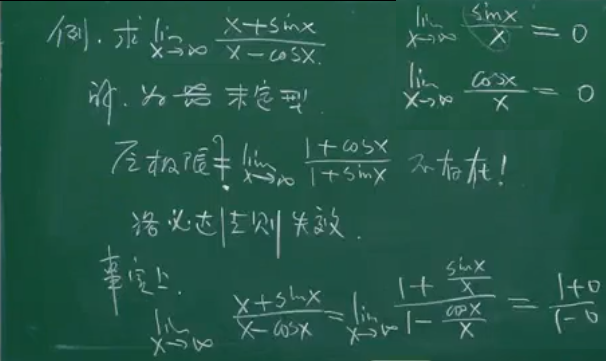 例. 求 lim x→∞ (x+sinx)/(x-cosx).
lim x→∞ sinx/x = 0
lim x→∞ cosx/x = 0
解. 为 ∞/∞ 未定型
原极限 ≟ lim x→∞ (1+cosx)/(1+sinx) 不存在!
洛必达法则失效.
事实上.
lim x→∞ (x+sinx)/(x-cosx) = lim x→∞ (1+sinx/x)/(1-cosx/x) = (1+0)/(1-0)